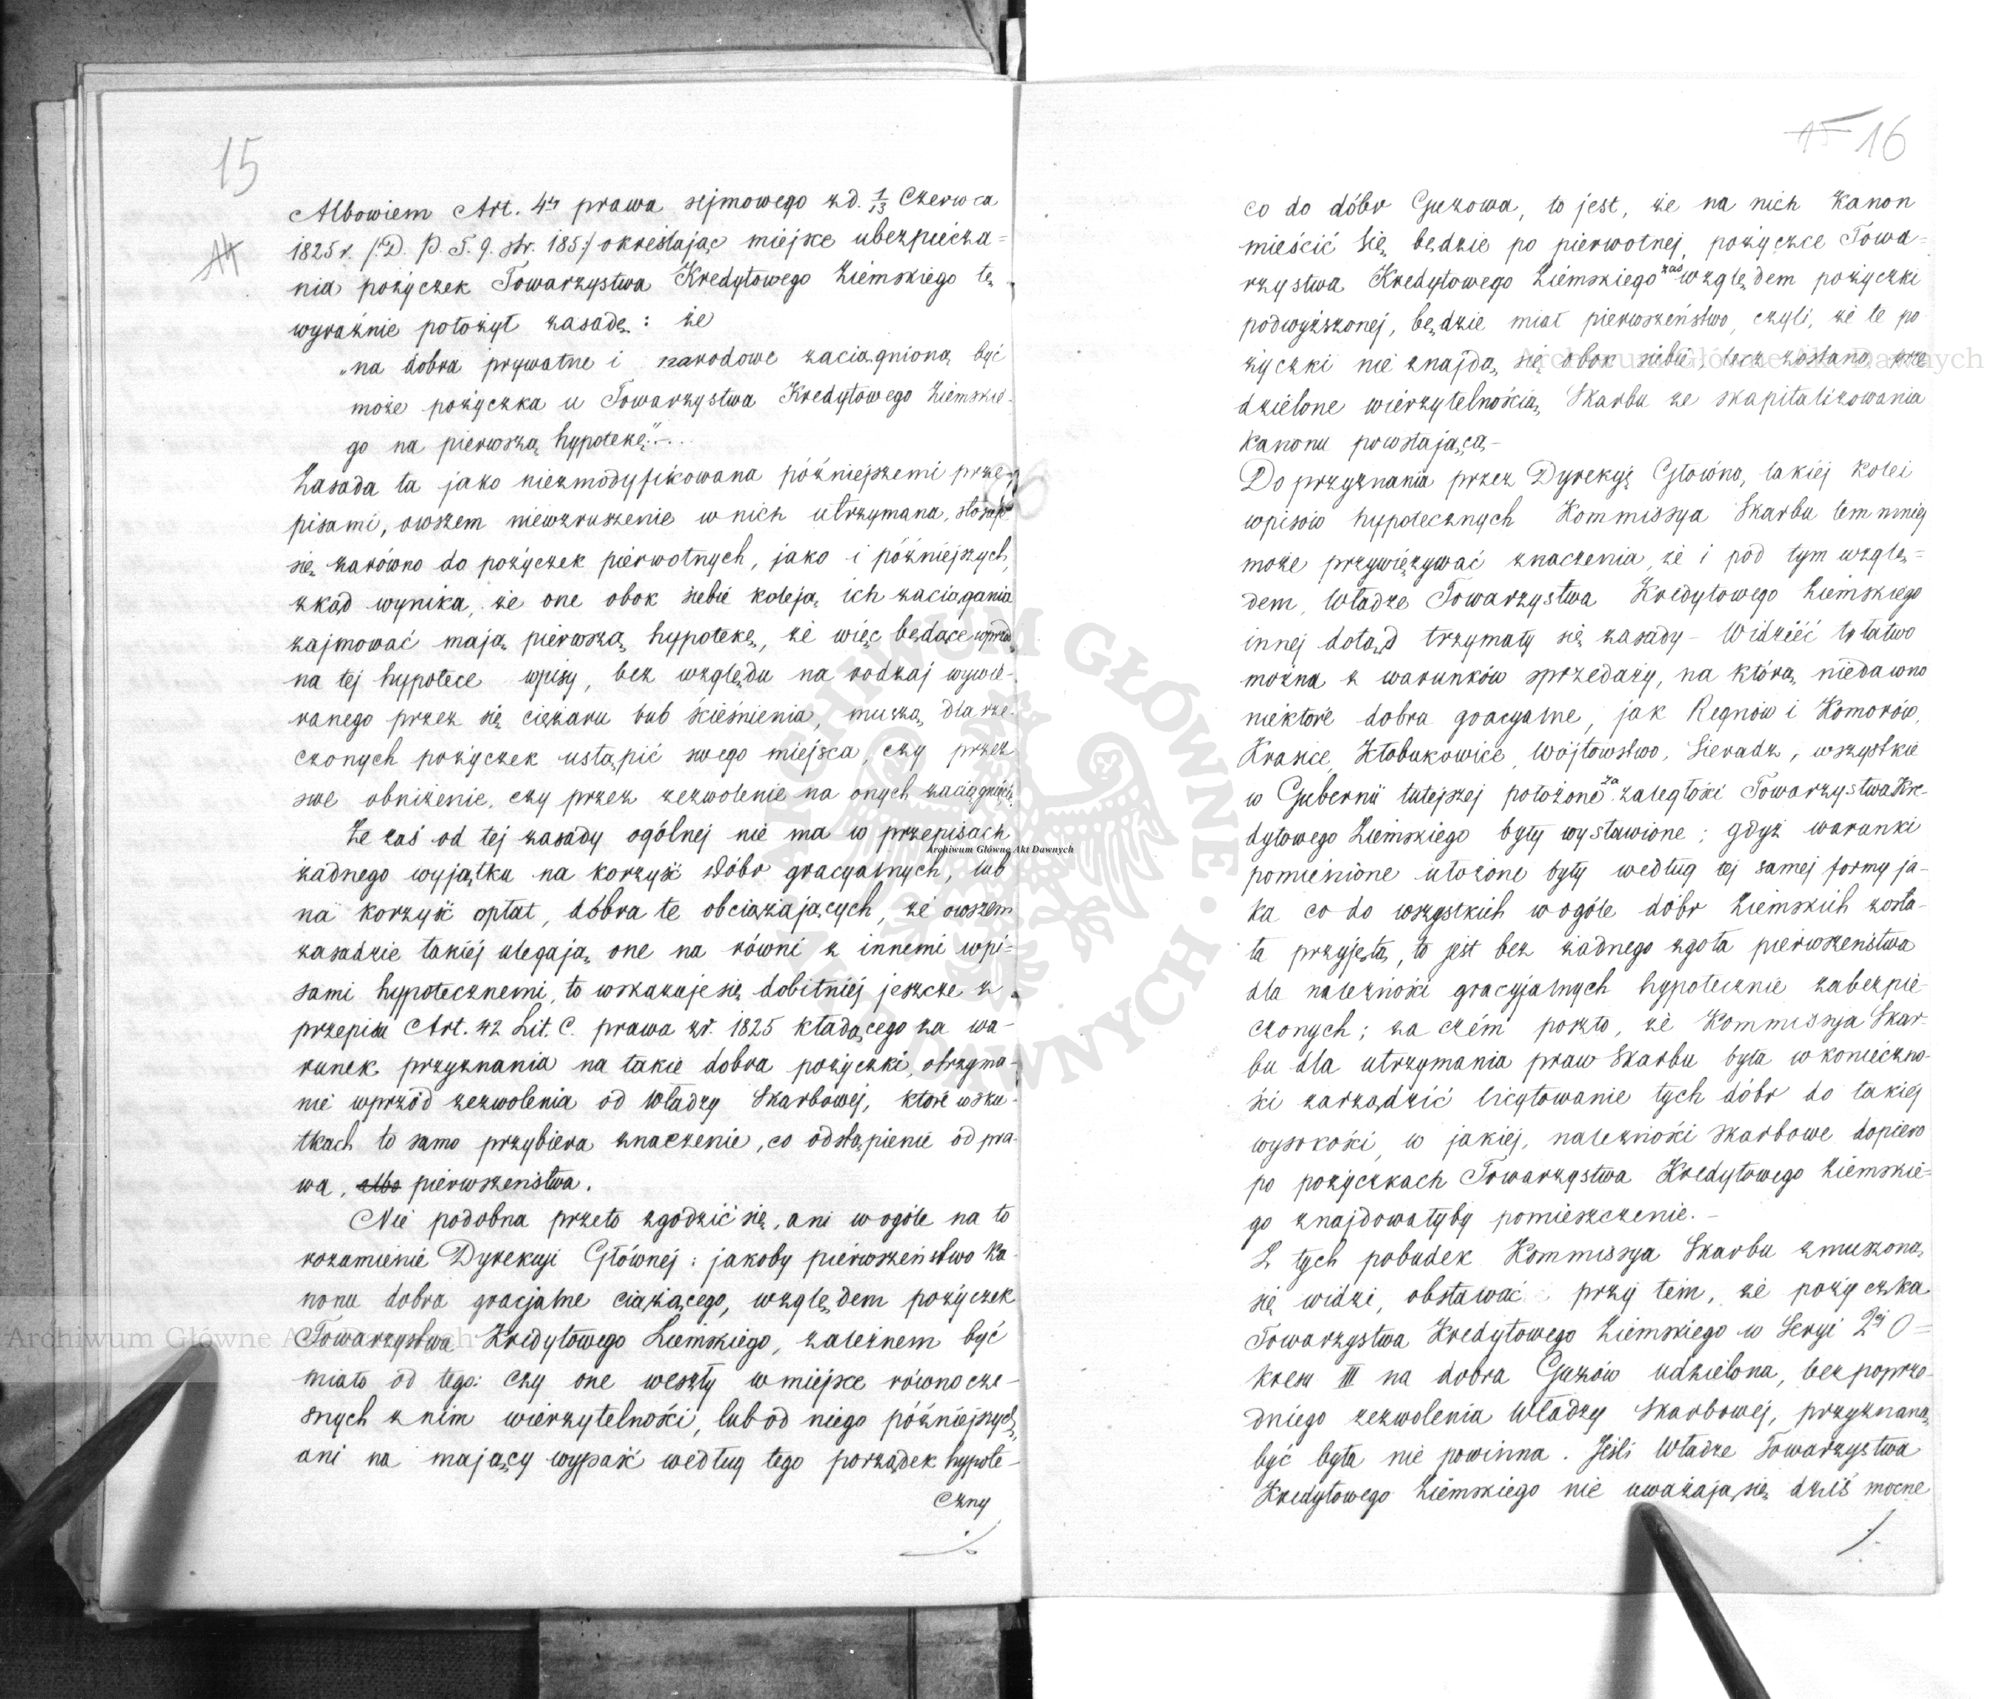 15
14
Albowiem Art. 4ty prawa sejmowego z d. 1/13 Czerwca
1825 r. /: D. P. T. 9. str. 185 :/ określając miejsce ubezpiecza=
nia pożyczek Towarzystwa Kredytowego Ziemskiego tę
wyraźnie położył zasadę: że
„na dobra prywatne i narodowe zaciągnioną być
może pożyczka u Towarzystwa Kredytowego Ziemskie-
go na pierwszą hypotekę."-...
Zasada ta jako niezmodyfikowana późniejszemi prze-
pisami, owszem niewzruszenie w nich utrzymana, stosuje
się zarówno do pożyczek pierwotnych, jako i późniejszych,
zkąd wynika, że one obok siebie koleją ich zaciągania
zajmować mają pierwszą hypotekę, że więc będące wprzód
na tej hypotece wpisy, bez względu na rodzaj wywie-
ranego przez się ciężaru lub ścieśnienia, muszą dla rze-
czonych pożyczek ustąpić swego miejsca, czy przez
swe obniżenie, czy przez zezwolenie na onych zaciągnięcie.
Że zaś od tej zasady ogólnej nie ma w przepisach
żadnego wyjątku na korzyść dóbr gracyalnych, lub
na korzyść opłat, dobra te obciążających, że owszem
zasadzie takiej ulegają one na równi z innemi wpi-
sami hypotecznemi, to wskazuje się dobitniej jeszcze z
przepisu Art. 42 Lit. C. prawa z r. 1825 kładącego za wa-
runek przyznania na takie dobra pożyczki, otrzyma-
nie wprzód zezwolenia od Władzy Skarbowej, które w sku-
tkach to samo przybiera znaczenie, co odstąpienie od pra-
wa, albo pierwszeństwa.
Nie podobna przeto zgodzić się, ani w ogóle na to
rozumienie Dyrekcyi Głównej: jakoby pierwszeństwo Ka-
nonu dobra gracjalne ciążącego, względem pożyczek
Towarzystwa Kredytowego Ziemskiego, zależnem być
miało od tego: czy one weszły w miejsce równocze-
snych z nim wierzytelności, lub od niego późniejszych,
ani na mający wypaść według tego porządek hypote-
czny
15 16
co do dóbr Guzowa, to jest, że na nich Kanon
mieścić się będzie po pierwotnej pożyczce Towa=
rzystwa Kredytowego Ziemskiego zaś względem pożyczki
podwyższonej, będzie miał pierwszeństwo, czyli, że te po
życzki nie znajdą się obok siebie, lecz zostaną prze
dzielone wierzytelnością Skarbu ze skapitalizowania
kanonu powstającą-
Do przyznania przez Dyrekcyę Główną takiej kolei
wpisów hypotecznych Kommissya Skarbu tem mniej
może przywięzywać znaczenia, że i pod tym wzglę=
dem, Władze Towarzystwa Kredytowego Ziemskiego
innej dotąd trzymały się zasady - Widzieć to łatwo
można z warunków sprzedaży, na którą niedawno
niektóre dobra gracyalne, jak Regnów i Komorów,
Krasice, Kłobukowice, Wójtowstwo, Sieradz, wszystkie
w Gubernii tutejszej położone za zaległości Towarzystwa Kre-
dytowego Ziemskiego były wystawione; gdyż warunki
pomienione ułożone były według tej samej formy ja-
ka co do wszystkich w ogóle dóbr Ziemskich zosta-
ła przyjętą, to jest bez żadnego zgoła pierwszeństwa
dla należności gracyjalnych hypotecznie zabezpie-
czonych; za czém poszło, że Kommissya Skar-
bu dla utrzymania praw Skarbu była w koniecznо-
ści zarządzić licytowanie tych dóbr do takiej
wysokości, w jakiej, należności Skarbowe dopiero
po pożyczkach Towarzystwa Kredytowego Ziemskie=
go znajdowałyby pomieszczenie.-
Z tych pobudek Kommissya Skarbu zmuszoną
się widzi, obstawać przy tem, że pożyczka
Towarzystwa Kredytowego Ziemskiego w Seryi 2ej O=
kresu III na dobra Guzów udzielona, bez poprze-
dniego zezwolenia Władzy Skarbowej, przyznaną
być była nie powinna. Jeśli Władze Towarzystwa
Kredytowego Ziemskiego nie uważają się dziś mocne
Archiwum Główne Akt Dawnych